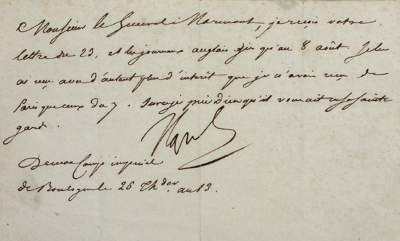 Monsieur le General Marmont, je reçois votre
lettre du 23, et les journaux anglais jusqu'au 8 août. Je les
ai vus avec d'autant plus d'interêt que je n'avais reçu de
Paris que ceux du 7. Sur ce je prie Dieu qu'il vous ait en sa sainte
garde.
De mon Camp impérial
de Boulogne le 26 Thdor an 13.